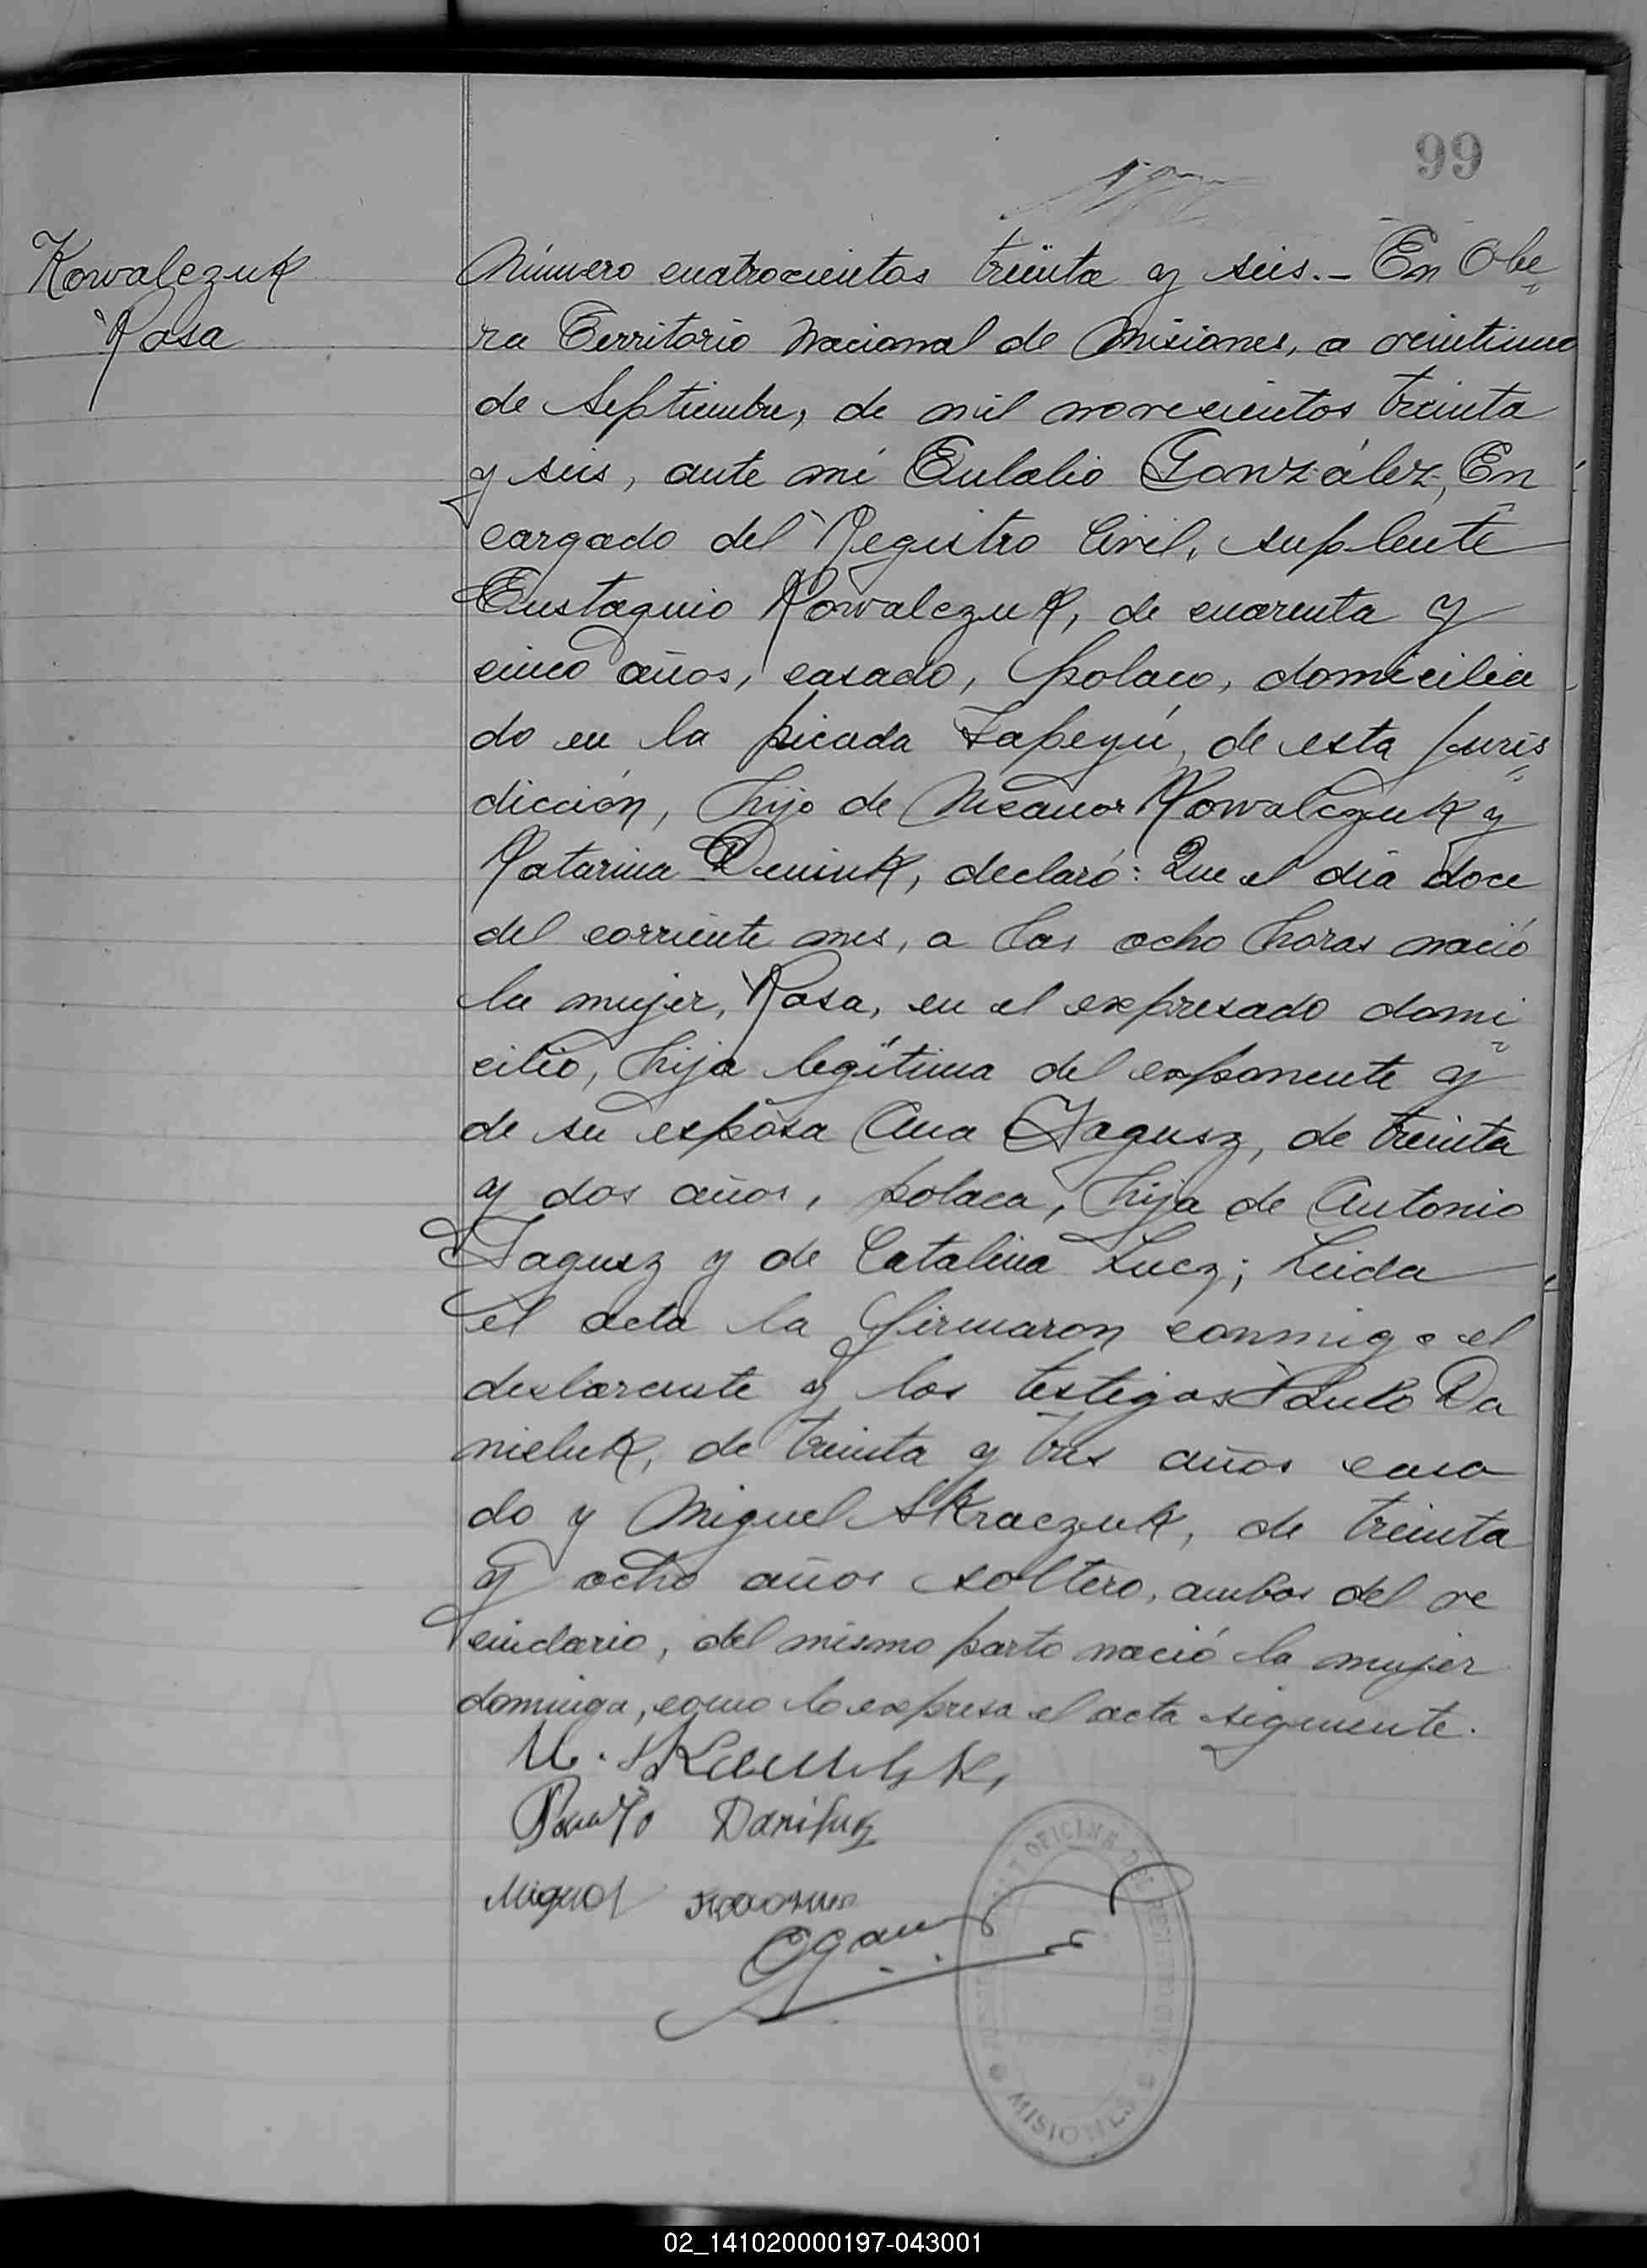 99
Kowalczuk
Rosa
Número cuatrocientos treinta y seis.- En Obe
ra Territorio Nacional de Misiones, a veintiuno
de Septiembre, de mil novecientos treinta
y seis, ante mí Eulalio González, En
cargado del Registro Civil, suplente
Eustaquio Kowalczuk, de cuarenta y
cinco años, casado, polaco, domicilia
do en la picada Yapeyú, de esta juris
dicción, hijo de Nicanor Kowalczuk y
Katarina Deniuk, declaró: Que el día doce
del corriente mes, a las ocho horas nació
la mujer, Rosa, en el expresado domi
cilio, hija legítima del exponente y
de su esposa Ana Jagusz, de treinta
y dos años, polaca, hija de Antonio
Jagusz y de Catalina Lucz; Leida
el acta la firmaron conmigo el
declarante y los testigos Pablo Da
nieluk, de treinta y tres años casa
do y Miguel Skraczuk, de treinta
y ocho años soltero, ambos del ve
cindario, del mismo parto nació la mujer
dominga, como lo expresa el acta siguiente.
Miguel
OFICINA DEL REGISTRO CIVIL
MISIONES
02_141020000197-043001